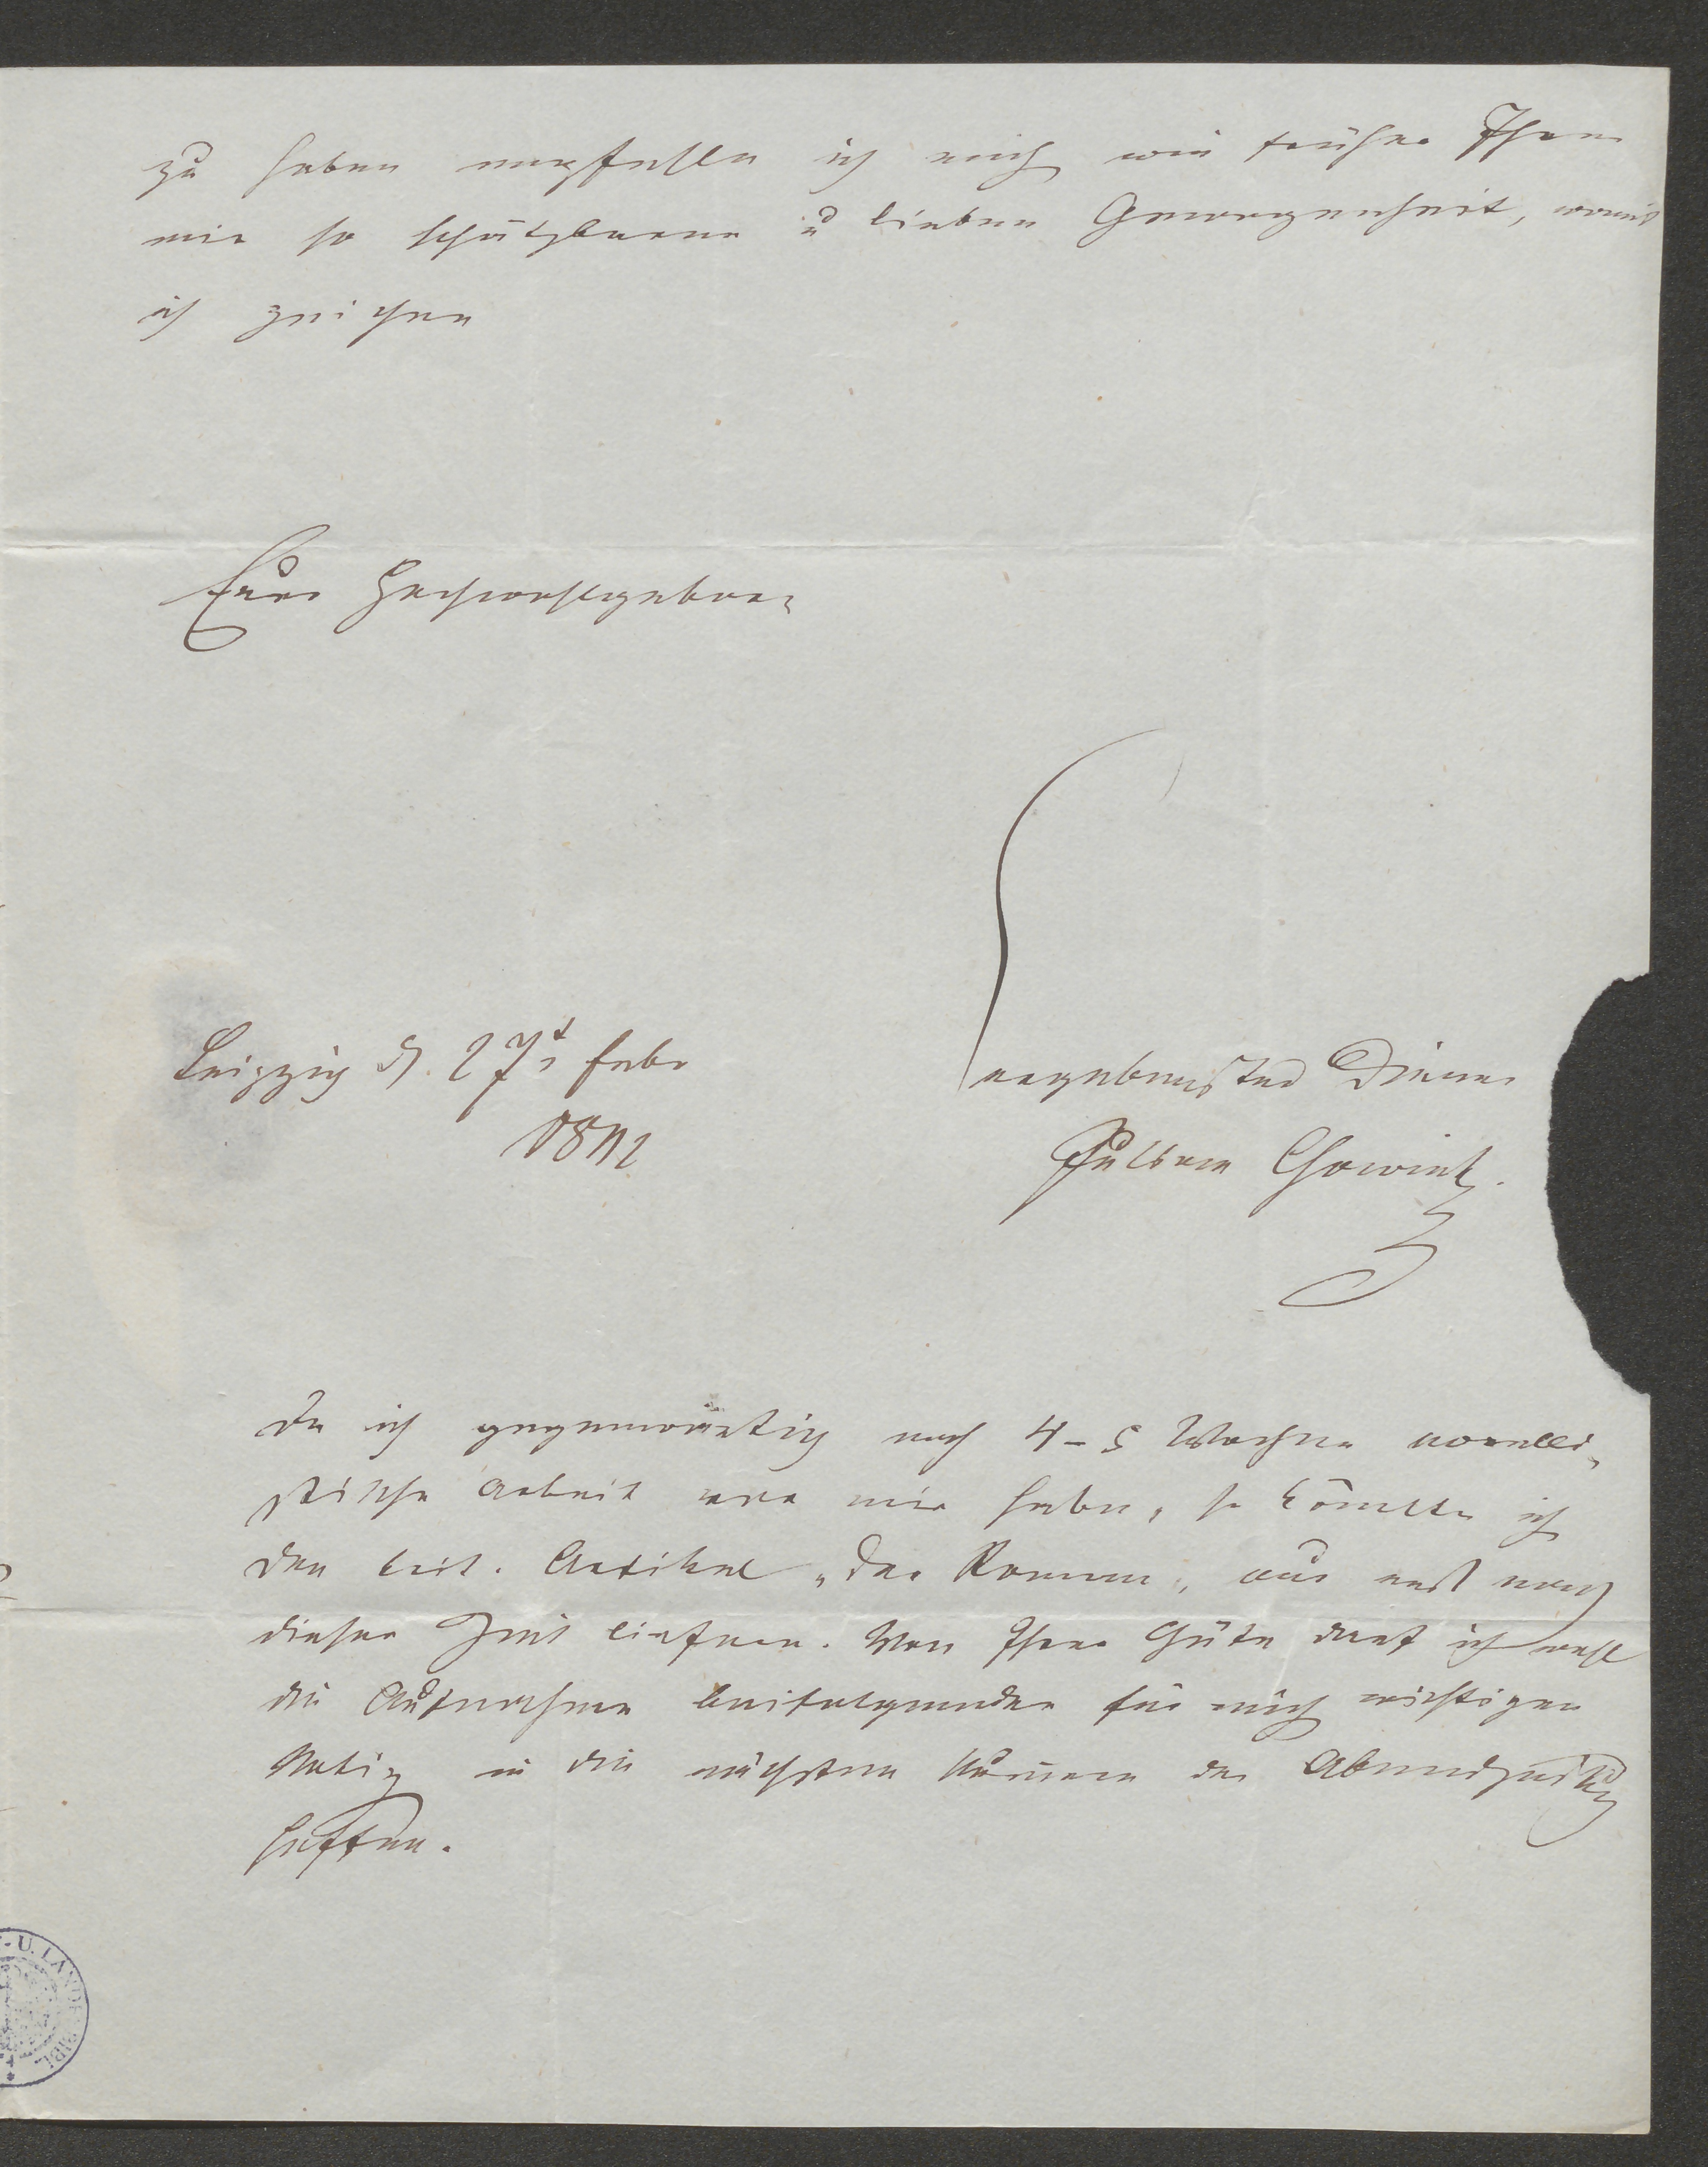 zu haben empfehle ich mich wie früher Ihrer
mir so schätzbaren u lieben Gewogenheit, womit
ich zeichne
Euer Hochwohlgeboren
Leipzig d. 27t Febr
1842
ergebenster Diener
Julian Chownitz.
Da ich gegenwärtig noch 4-5 Wochen novelli-
stische Arbeit vor mir habe, so könnte ich
den krit. Artikel „Der Roman" erst nach
dieser Zeit liefern. Von Ihrer Güte darf ich wohl
die Aufnahme beifolgender für mich wichtigen
Notiz in die nächsten Numern der Abendzeitung
hoffen.
U. LANDESBIBL